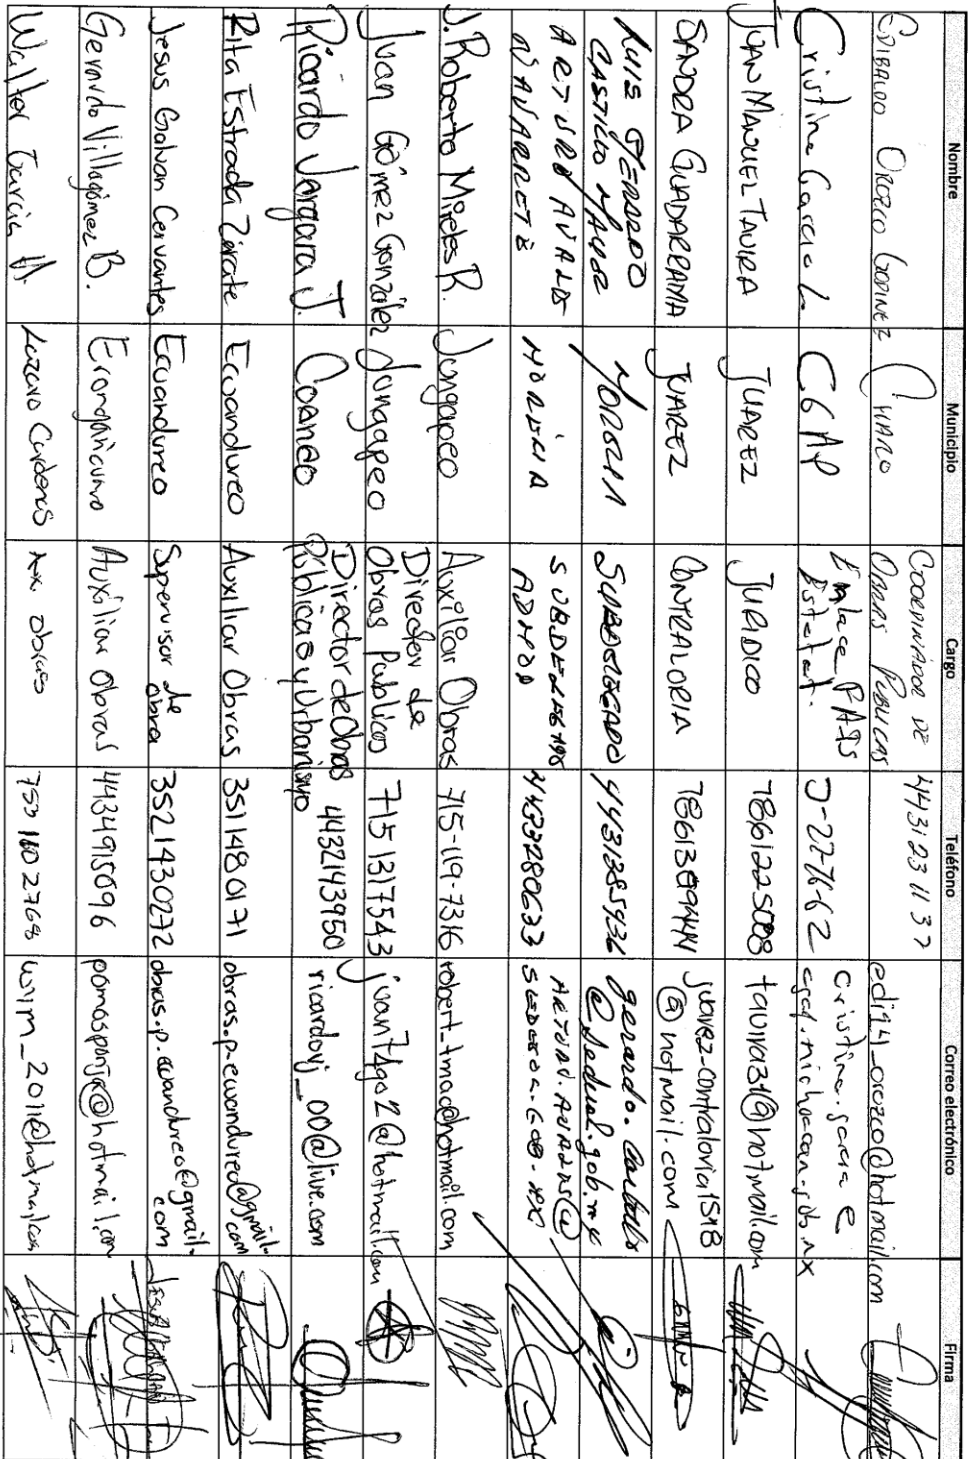 Nombre Municipio Cargo Teléfono Correo electrónico Firma
EDIBALDO OROZCO GODINEZ CHARO COORDINADOR DE OBRAS PUBLICAS 4431231137 edi944_orozco@hotmail.com
Cristina Garcia L CGAP Enlace PAIS Estatal. cristina.garcia@cgap.michoacan.gob.mx
JUAN MANUEL TAVIRA JUAREZ JURIDICO 7861225088 tavira31@hotmail.com
SANDRA GUADARRAMA JUAREZ CONTRALORIA juarez-contraloria1518
@hotmail.com
LUIS GERARDO
CASTILLO MORELIA SUBDELEGADO gerardo.
@sedesol.gob.mx
ARTURO AVALOS
NAVARRETE MORELIA ADMOR 4433280633 ARTURO.AVALOS@
SEDESOL.GOB.MX
J. Roberto Mireles R. Jungapeo Auxiliar Obras 715-119-7316 robert_tmac@hotmail.com
Juan Gómez González Jungapeo Director de
Obras Publicos 7151317543 juan74go2@hotmail.com
Ricardo Vargara J. COENEO Director de Obras
Públicas y Urbanismo 4432143950 ricardovj_00@live.com
Rita Estrada Zárate Ecuandureo Auxiliar Obras 3511480171 obras.p.ecuandureo@gmail.com
Jesus Galvan Cervantes Ecuandureo Supervisor de
obra 3521430272 obras.p.ecuandureo@gmail.com
Gerardo Villagómez B. Erongaricuaro Auxiliar Obras 4434915096 pomosponja@hotmail.com
Walter Garcia M. Lazaro Cardenas Aux. obras 753 110 2768 wym_2011@hotmail.com